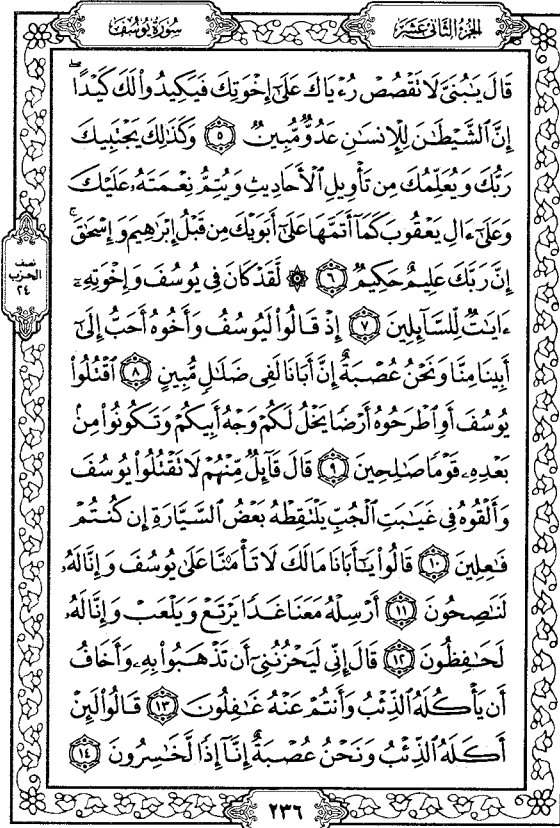 الجزء الثاني عشر
سورة يوسف
قَالَ يَٰبُنَىَّ لَا تَقْصُصْ رُءْيَاكَ عَلَىٰٓ إِخْوَتِكَ فَيَكِيدُوا۟ لَكَ كَيْدًا ۖ
إِنَّ ٱلشَّيْطَٰنَ لِلْإِنسَٰنِ عَدُوٌّ مُّبِينٌ ٥ وَكَذَٰلِكَ يَجْتَبِيكَ
رَبُّكَ وَيُعَلِّمُكَ مِن تَأْوِيلِ ٱلْأَحَادِيثِ وَيُتِمُّ نِعْمَتَهُۥ عَلَيْكَ
وَعَلَىٰٓ ءَالِ يَعْقُوبَ كَمَآ أَتَمَّهَا عَلَىٰٓ أَبَوَيْكَ مِن قَبْلُ إِبْرَٰهِيمَ وَإِسْحَٰقَ ۚ
إِنَّ رَبَّكَ عَلِيمٌ حَكِيمٌ ٦ ۞ لَّقَدْ كَانَ فِى يُوسُفَ وَإِخْوَتِهِۦٓ
ءَايَٰتٌ لِّلسَّآئِلِينَ ٧ إِذْ قَالُوا۟ لَيُوسُفُ وَأَخُوهُ أَحَبُّ إِلَىٰٓ
أَبِينَا مِنَّا وَنَحْنُ عُصْبَةٌ إِنَّ أَبَانَا لَفِى ضَلَٰلٍ مُّبِينٍ ٨ ٱقْتُلُوا۟
يُوسُفَ أَوِ ٱطْرَحُوهُ أَرْضًا يَخْلُ لَكُمْ وَجْهُ أَبِيكُمْ وَتَكُونُوا۟ مِنۢ
بَعْدِهِۦ قَوْمًا صَٰلِحِينَ ٩ قَالَ قَآئِلٌ مِّنْهُمْ لَا تَقْتُلُوا۟ يُوسُفَ
وَأَلْقُوهُ فِى غَيَٰبَتِ ٱلْجُبِّ يَلْتَقِطْهُ بَعْضُ ٱلسَّيَّارَةِ إِن كُنتُمْ
فَٰعِلِينَ ١٠ قَالُوا۟ يَٰٓأَبَانَا مَالَكَ لَا تَأْمَ۫نَّا عَلَىٰ يُوسُفَ وَإِنَّا لَهُۥ
لَنَٰصِحُونَ ١١ أَرْسِلْهُ مَعَنَا غَدًا يَرْتَعْ وَيَلْعَبْ وَإِنَّا لَهُۥ
لَحَٰفِظُونَ ١٢ قَالَ إِنِّى لَيَحْزُنُنِىٓ أَن تَذْهَبُوا۟ بِهِۦ وَأَخَافُ
أَن يَأْكُلَهُ ٱلذِّئْبُ وَأَنتُمْ عَنْهُ غَٰفِلُونَ ١٣ قَالُوا۟ لَئِنْ
أَكَلَهُ ٱلذِّئْبُ وَنَحْنُ عُصْبَةٌ إِنَّآ إِذًا لَّخَٰسِرُونَ ١٤
نصف
الحزب
٢٤
٢٣٦